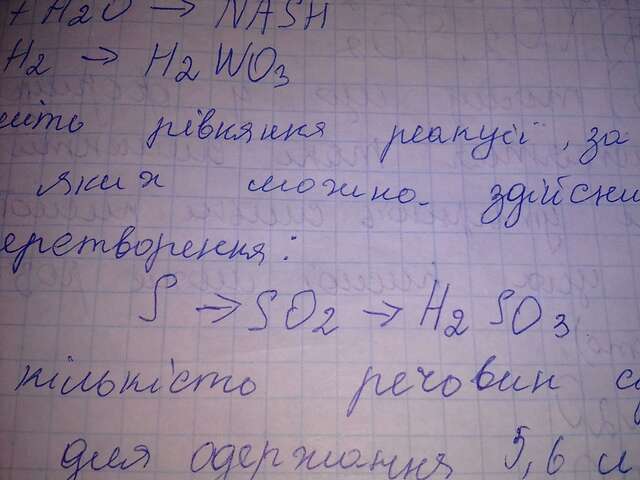 + H2O → NASH
H2 → H2WO3
ить рівняння реакції, за
яких можно здійсни
еретворення:
S → SO2 → H2SO3
кількісто речовин с
для одержання 5,6 л